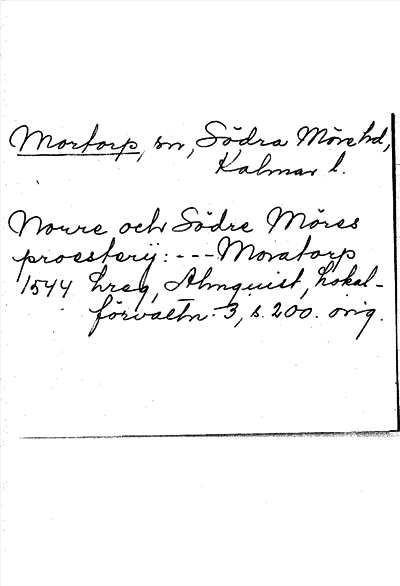 Mortorp, sn, Södra Möre hd,
Kalmar l.
Norre och Södre Möres
proesterij: --- Moratorp
1544 hreg, Almquist, Lokal-
förvaltn. 3, s. 200. orig.